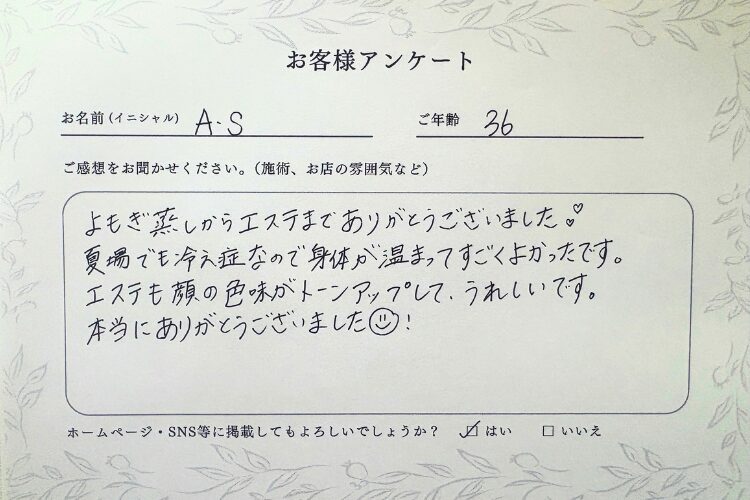 お客様アンケート
お名前(イニシャル) A.S ご年齢 36
ご感想をお聞かせください。(施術、お店の雰囲気など)
よもぎ蒸しからエステまでありがとうございました♡♡
夏場でも冷え症なので身体が温まってすごくよかったです。
エステも顔の色味がトーンアップして、うれしいです。
本当にありがとうございました☺!
ホームページ・SNS等に掲載してもよろしいでしょうか? ☑はい □いいえ